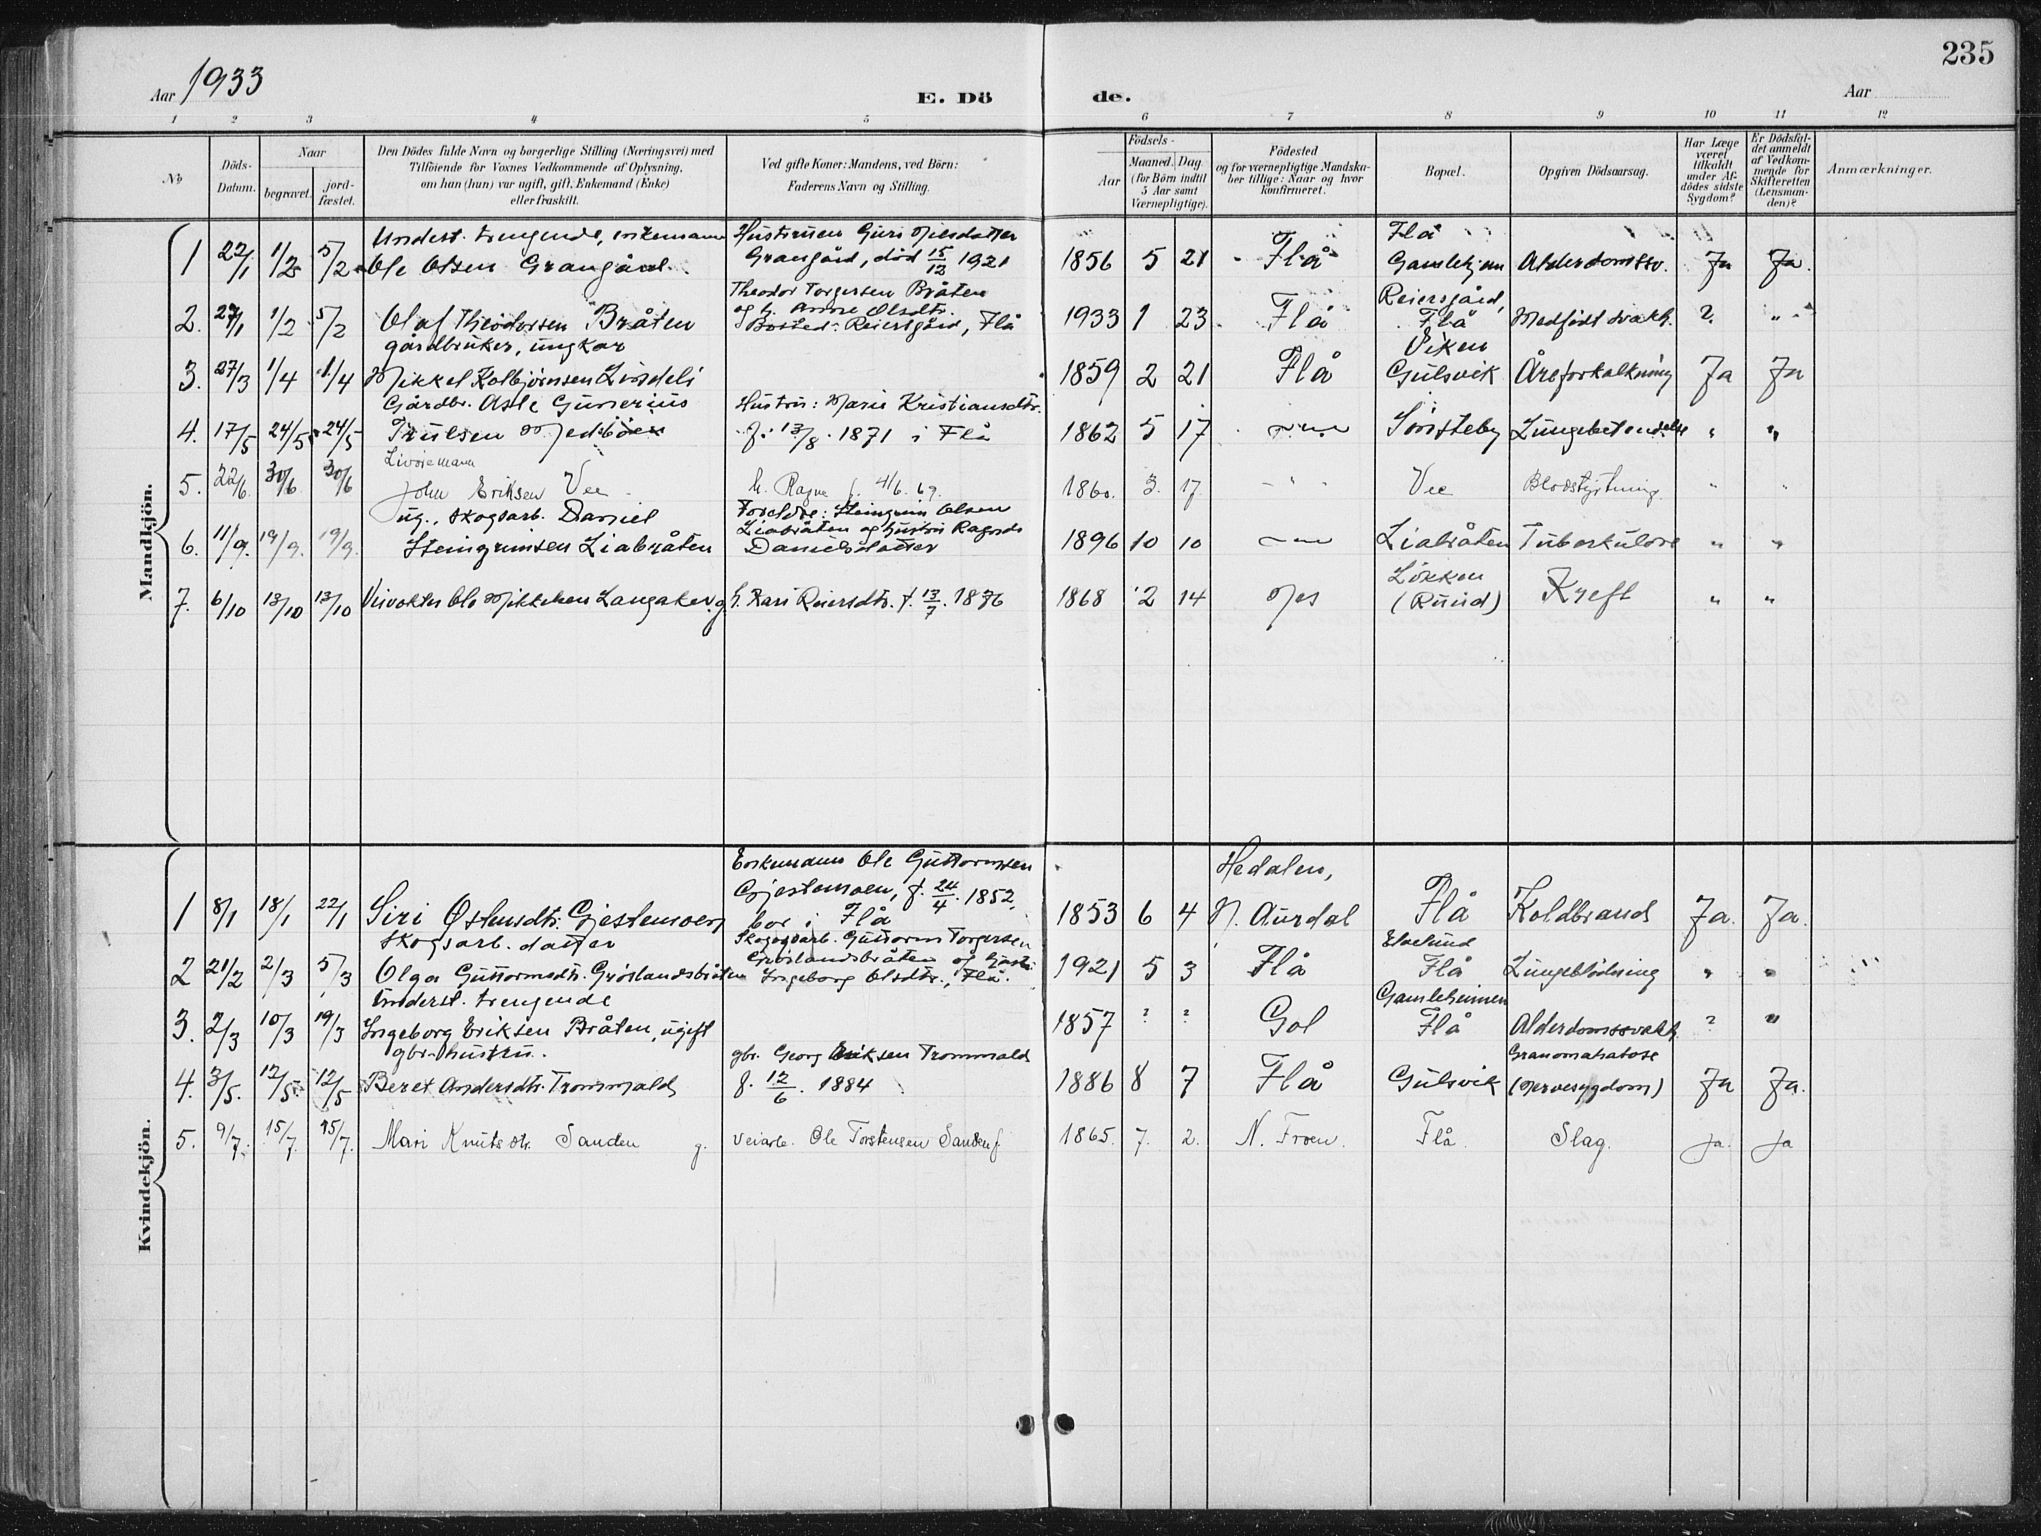 235
Aar 1933
E. Dö
de.
Aar
1 2 3 4 5 6 7 8 9 10 11 12
No
Döds-
Datum.
Naar
begravet.
jord-
fæstet.
Den Dödes fulde Navn og borgerlige Stilling (Næringsvei) med
Tilföiende for Voxnes Vedkommende af Oplysning,
om han (hun) var ugift, gift, Enkemand (Enke)
eller fraskilt.
Ved gifte Koner: Mandens, ved Börn:
Faderens Navn og Stilling.
Födsels-
Aar
Maaned. Dag
(for Börn indtil
5 Aar samt
Værnepligtige).
Födested
og for værnepligtige Mandska-
ber tillige: Naar og hvor
konfirmeret.
Bopæl.
Opgiven Dödsaarsag.
Har Læge
været
tilkaldt
under Af-
dödes sidste
Sygdom?
Er Dödsfal-
det anmeldt
af Vedkom-
mende for
Skifteretten
(Lensman-
den)?
Anmærkninger.
Mandkjön.
Underst. trengende, enkemann Hustruen Guri Nilsdatter Flå
1 22/1 1/2 5/2 Ole Olsen Grangård Grangård, död 15/12 1921 1856 5 21 Flå Gamlehjem Alderdomssv. Ja Ja.
Theodor Torgersen Bråten Reiersgård,
2. 27/1 1/2 5/2 Olaf Theodorsen Bråten og h. Anne Olsdtr. 1933 1 23. Flå Flå Medfödt svakh. ? "
Bosted: Reiersgård, Flå
gårdbruker, ungkar Viken
3. 27/3 1/4 1/4 Mikkel Kolbjörnsen Livsdeli 1859 2 21 Flå Gulsvik Åreforkalkning Ja Ja
Gårdbr. Asle Gunerius Hustru: Marie Kristiansdtr.
4. 17/5 24/5 24/5 Trulsen Medböen f. 13/8 1871 i Flå 1862 5 17 Sörsteby Lungebetendelse " "
Livöremann
5. 22/6. 30/6 30/6 John Eriksen Vee h. Ragne f. 4/6. 69. 1860. 3. 17. " Vee Blodstyrtning " "
ug., skogsarb. Daniel Foreldre: Steingrim Olsen
Liabråten og hustru Ragnda
6. 11/9. 19/9. 19/9. Steingrimsen Liabråten Danielsdatter 1896 10 10 Liabråten Tuberkulose " "
Lökken
7. 6/10 13/10 13/10 Veivokter Ole Mikkelsen Langaker g. h. Kari Reiersdtr. f. 13/7. 1876 1868 2 14 Nes (Ruud) Kreft " "
Kvindekjön.
Enkemann Ole Guttormsen Hedalen,
Gjestemoen, f. 24/4. 1852,
1 8/1 18/1 22/1 Siri Östensdtr. Gjestemoen bor i Flå 1853 6 4 N. Aurdal Flå Koldbrand Ja. Ja.
Skogsarb. datter Skogsarb. Guttorm Torgersen Elselund
Gröslandsbråten og hustr.
2 21/2 2/3 5/3 Olga Guttormsdtr. Gröslandsbråten Ingeborg Olsdtr., Flå. 1921 5 3 Flå Flå Lungeblödning " "
Underst. trengende Gamleheimen
3. 2/3 10/3 19/3 Ingeborg Eriksen Bråten, ugift 1857 ? ? Gol Flå Alderdomssvakh. ? "
gbr. hustru. gbr. Georg Eriksen Trommald Granomatatose
4. 3/5. 12/5. 12/5 Beret Andersdtr. Trommald f. 12/6. 1884 1886 8 7 Flå Gulsvik (Nervesygdom) Ja Ja.
5. 9/7. 15/7. 15/7. Mari Knutsdtr. Sanden g. Veiarb. Ole Torstensen Sanden f. 1865. 7. 2. N. Froen. Flå. Slag. ja. ja